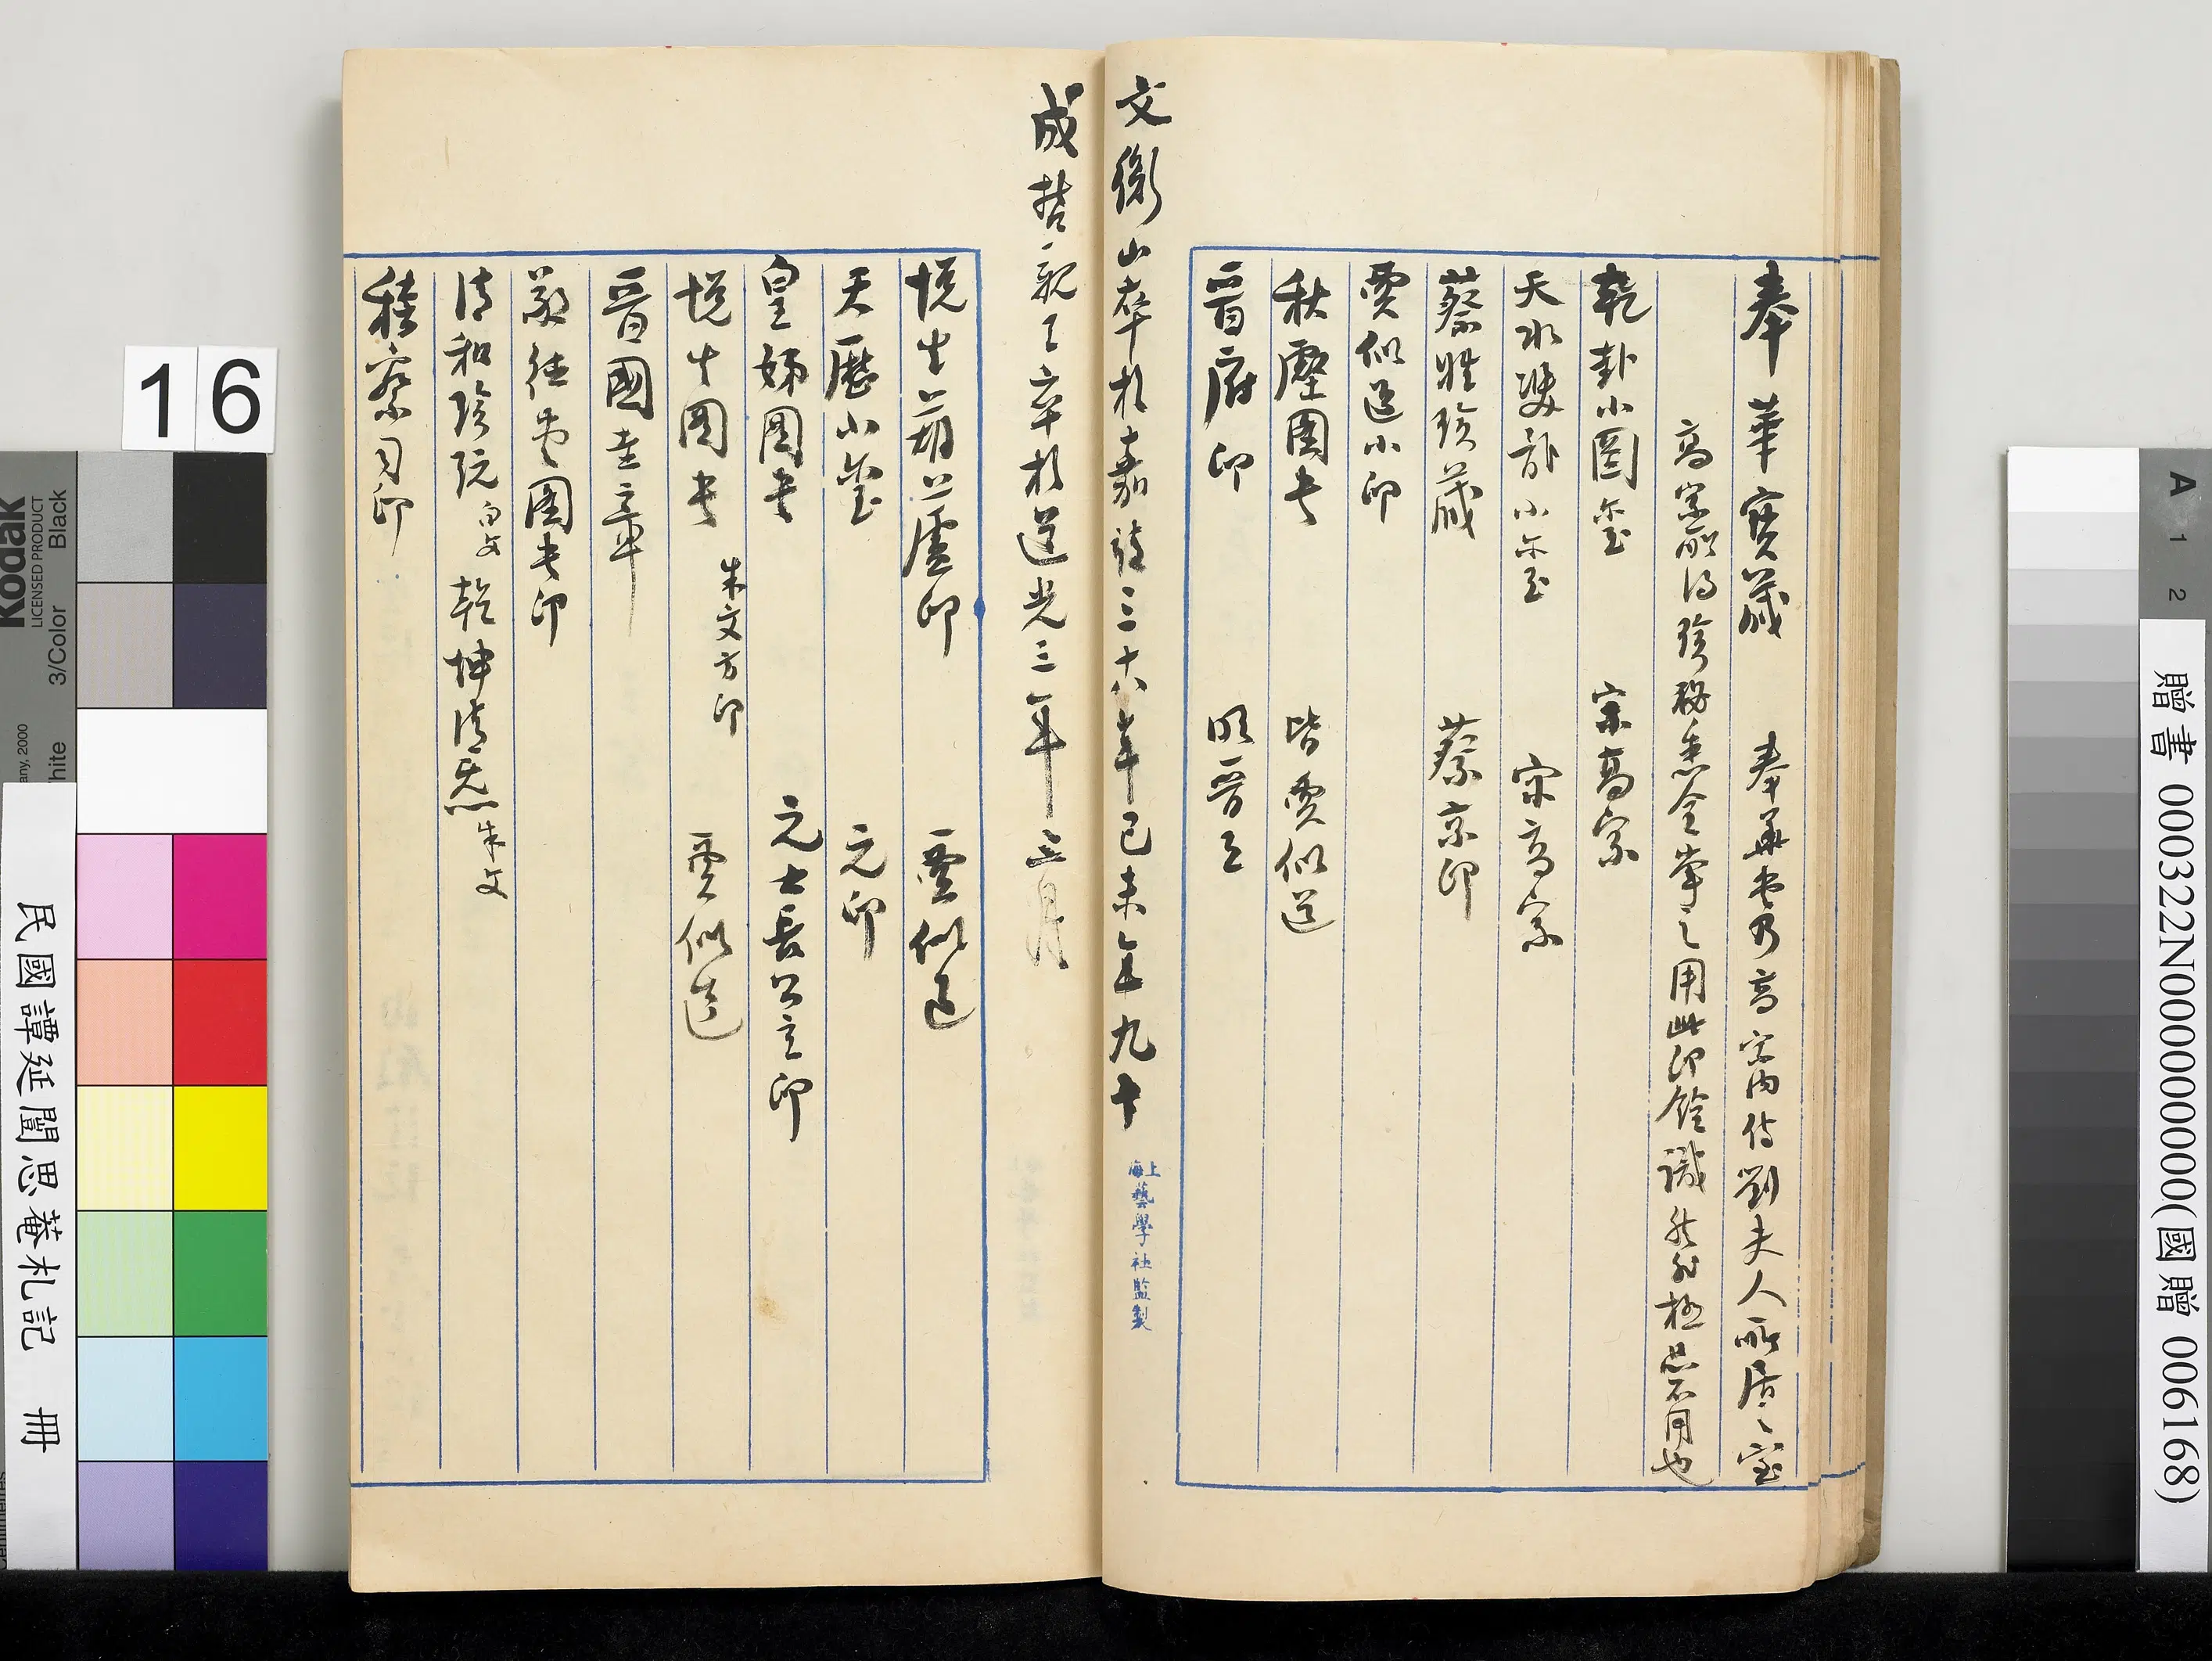 奉華寶藏　奉華堂乃高宗內侍劉夫人所居之室
高宗所得珍秘悉令掌之用此印鈐識然ils極品不用也
乾卦小圓璽　宋高宗
天水雙龍小璽　宋高宗
蔡姓珍藏　蔡京印
賈似道小印
秋壑圖書　皆賈似道
晉府印　明晉王
文衡山卒於嘉靖三十八年己未年九十
上海藝學社監製
成哲親王卒於道光三年三月
悅生葫蘆印　賈似道
天曆小璽　元印
皇姊圖書　元大長公主印
悅生圖書 朱文方印　賈似道
晉國奎章
敬德堂圖書印
清和珍玩 白文 乾坤清氣 朱文
稽察司印
16
Kodak
LICENSED PRODUCT
Black
3/Color
White
any, 2000
Centimetres
民國譚延闓思菴札記　冊
贈書 000322N000000000(國贈 006168)
A 1 2